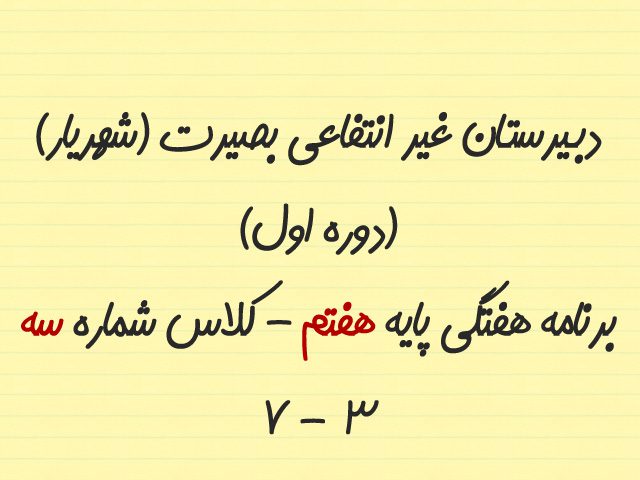 دبیرستان غیر انتفاعی بصیرت (شهریار)
(دوره اول)
برنامه هفتگی پایه هفتم - کلاس شماره سه
۳ - ۷